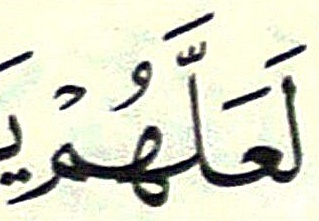 لَعَلَّهُمْ يَ